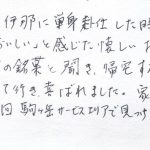 伊那に単身赴任した時
おいしい」と感じた懐しい
の銘菓と聞き、帰宅す
て行き、喜ばれました。家
回駒ヶ岳サービスエリアで見つけ